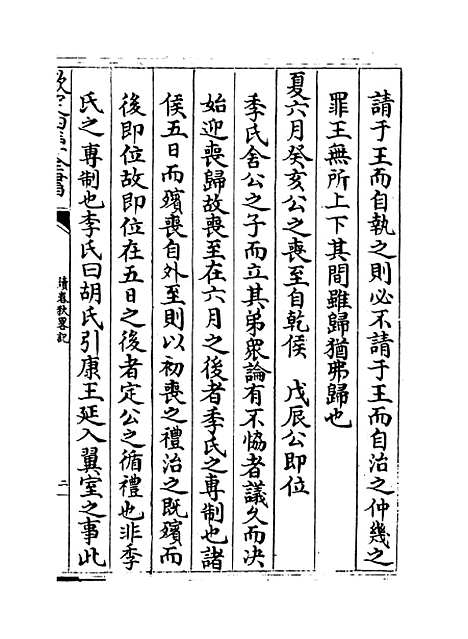 請于王而自執之則必不請于王而自治之仲幾之
罪王無所上下其間雖歸猶弗歸也
夏六月癸亥公之喪至自乾侯　戊辰公即位
季氏舍公之子而立其弟衆論有不恊者議久而决
始迎喪歸故喪至在六月之後者季氏之専制也諸
侯五日而殯喪自外至則以初喪之禮治之既殯而
後即位故即位在五日之後者定公之循禮也非季
氏之専制也李氏曰胡氏引康王延入翼室之事此
欽定四庫全書
讀春秋畧記
二